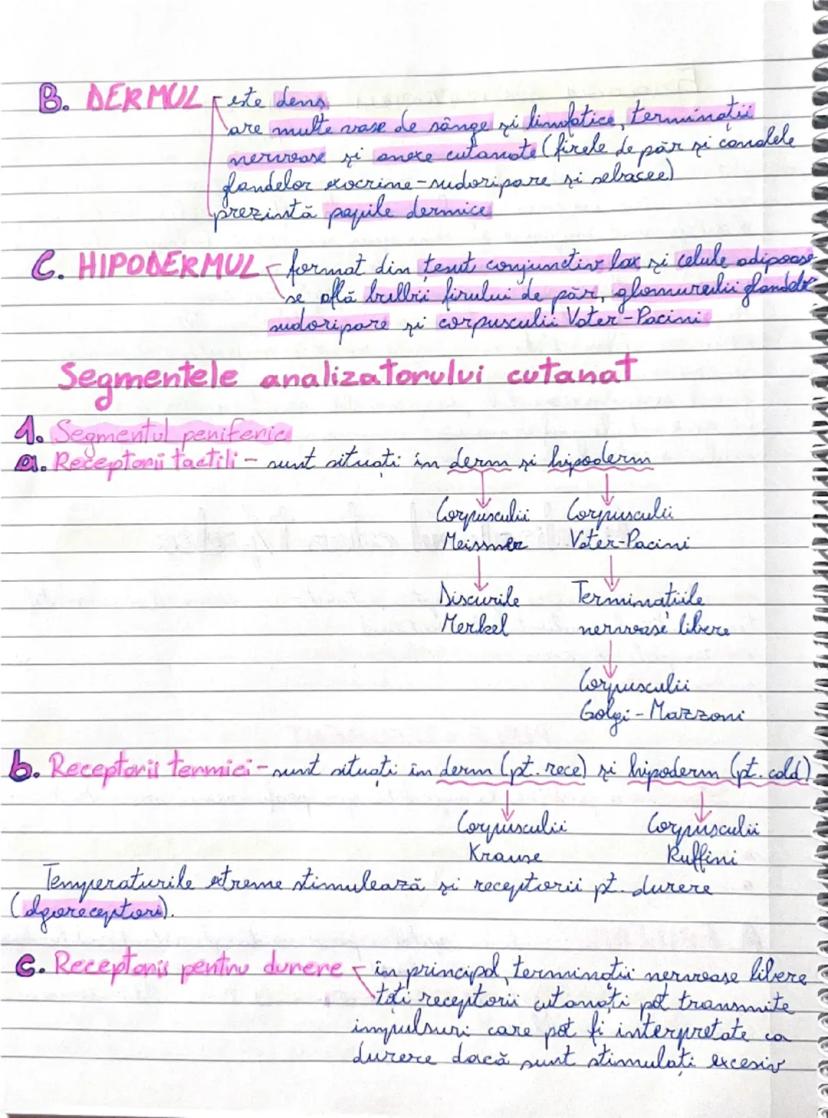 B. DERMUL - este dens
are multe vase de sânge și limfatice, terminații
nervoase și anexe cutanate (firele de păr și canalele
glandelor exocrine-sudoripare și sebacee)
prezintă papile dermice
C. HIPODERMUL - format din țesut conjunctiv lax și celule adipoase
se află bulbii firului de păr, glomurulii glandelor
sudoripare și corpusculii Vater-Pacini
Segmentele analizatorului cutanat
1. Segmentul periferic
a. Receptorii tactili - sunt situați în derm și hipoderm
Corpusculii Corpusculii
Meissner Vater-Pacini
Discurile Terminațiile
Merkel nervoase libere
Corpusculii
Golgi-Mazzoni
b. Receptorii termici - sunt situați în derm (pt. rece) și hipoderm (pt. cald)
Corpusculii Corpusculii
Krause Ruffini
Temperaturile extreme stimulează și receptorii pt. durere
(algoreceptori).
c. Receptorii pentru durere - în principal, terminații nervoase libere
toți receptorii cutanați pot transmite
impulsuri care pot fi interpretate ca
durere dacă sunt stimulați excesiv